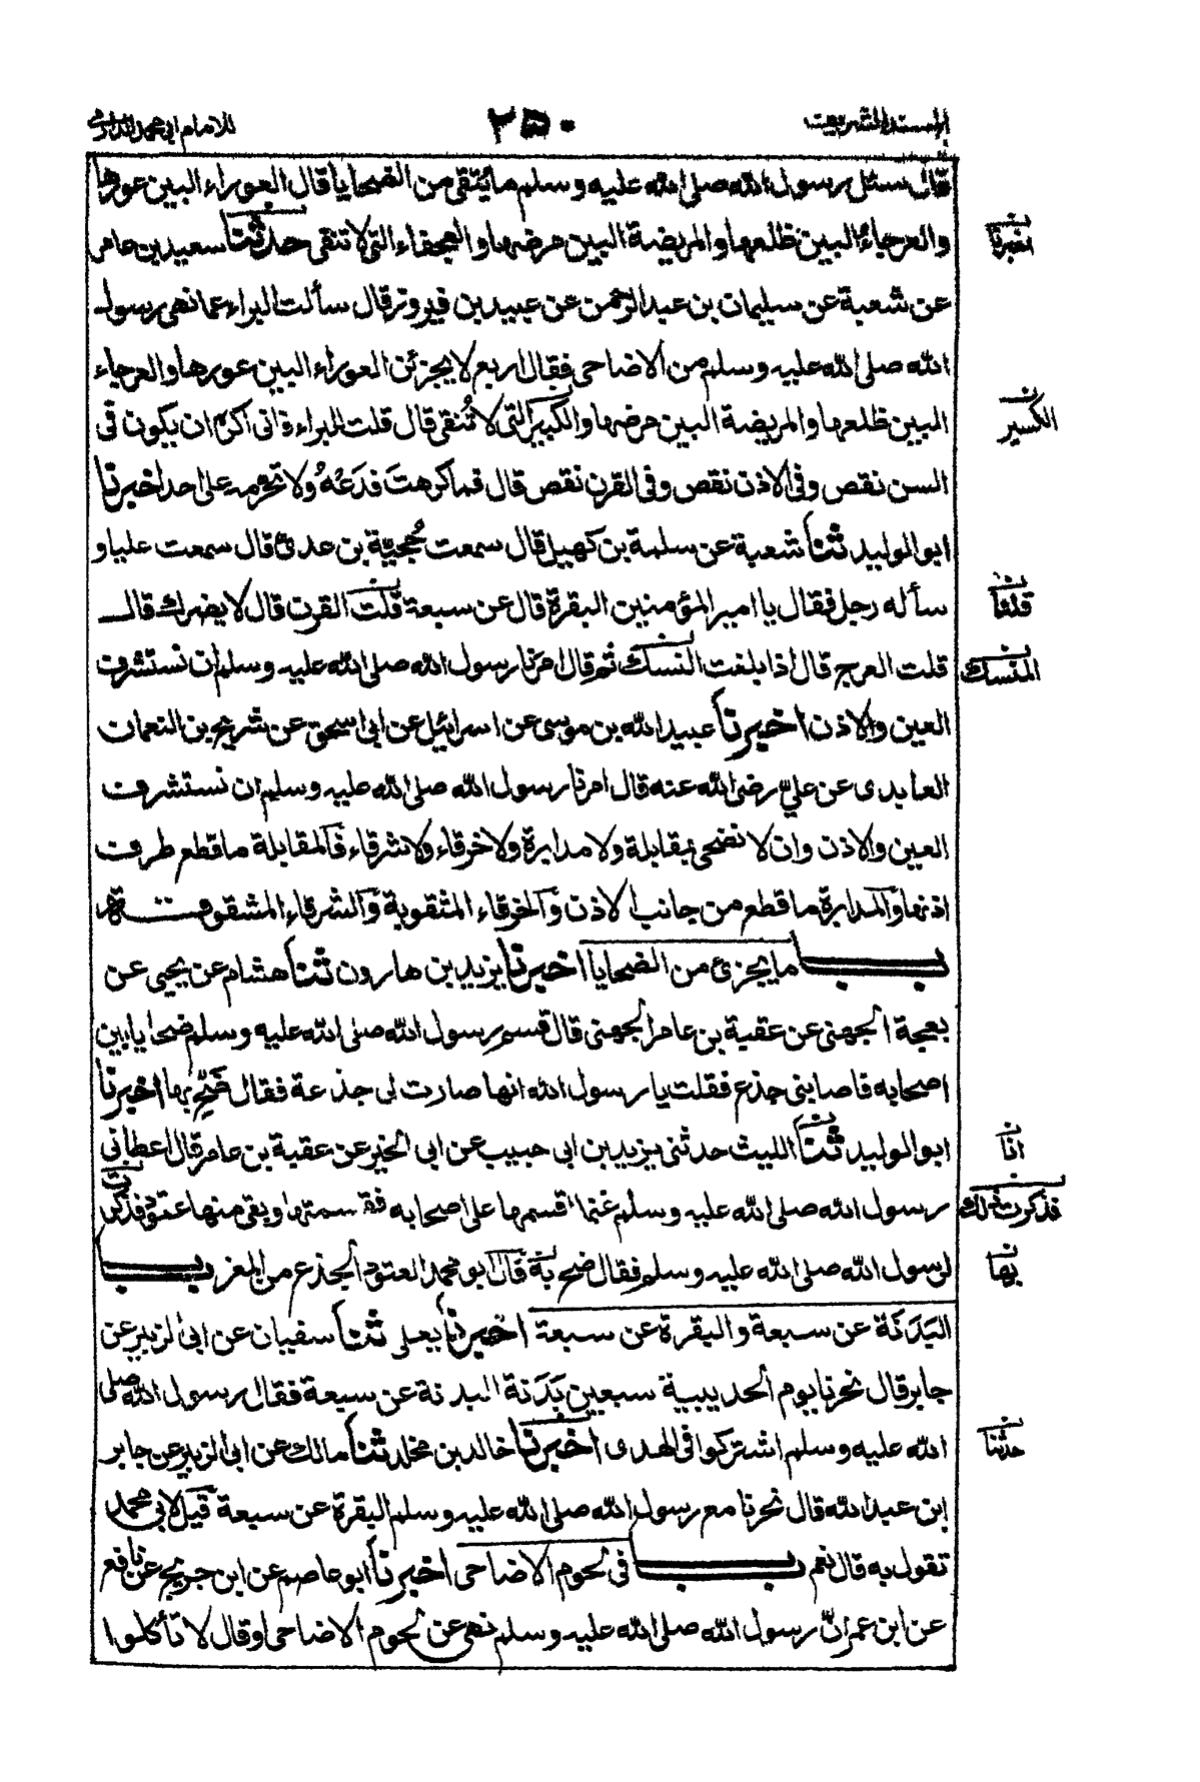 المسند الشريف ٢٥٠ للامام ابى محمد الدارمى
قال سئل رسول الله صلى الله عليه وسلم ما يتقى من الضحايا قال العوراء البين عورها
والعرجاء البين ظلعها والمريضة البين مرضها والعجفاء التى لا تنقى حدثنا سعيد بن عامر
اخبرنا
عن شعبة عن سليمان بن عبد الرحمن عن عبيد بن فيروز قال سألت البراء عما نهى رسول
الله صلى الله عليه وسلم من الاضاحى فقال اربع لا يجزئن العوراء البين عورها والعرجاء
البين ظلعها والمريضة البين مرضها والكبير التى لا تُنقى قال قلت للبراء فانى اكره ان يكون فى
الكسير
السن نقص وفى الاذن نقص وفى القرن نقص قال فما كرهتَ فدَعْهُ ولا تحرمه على احد اخبرنا
ابو الوليد ثنا شعبة عن سلمة بن كهيل قال سمعت حُجيّة بن عدى قال سمعت عليا و
سأله رجل فقال يا امير المؤمنين البقرة قال عن سبعة قلت القرن قال لا يضرك قال
قلنا
قلت العرج قال اذا بلغت النسك ثم قال امرنا رسول الله صلى الله عليه وسلم ان نستشرف
المنسك
العين والاذن اخبرنا عبيد الله بن موسى عن اسرائيل عن ابى اسحق عن شريح بن النعمان
العابدى عن علىّ رضى الله عنه قال امرنا رسول الله صلى الله عليه وسلم ان نستشرف
العين والاذن وان لا نضحى بمقابلة ولا مدابرة ولا خرقاء ولا شرقاء فالمقابلة ما قطع طرف
اذنها والمدابرة ما قطع من جانب الاذن والخرقاء المثقوبة والشرقاء المشقوقة
باب ما يجزئ من الضحايا اخبرنا يزيد بن هارون ثنا هشام عن يحيى عن
بعجة الجهنى عن عقبة بن عامر الجهنى قال قسم رسول الله صلى الله عليه وسلم ضحايا بين
اصحابه فاصابنى جذع فقلت يا رسول الله انها صارت لى جذعة فقال ضَحِّ بها اخبرنا
ابو الوليد ثنا الليث حدثنى يزيد بن ابى حبيب عن ابى الخير عن عقبة بن عامر قال اعطانى
انا
رسول الله صلى الله عليه وسلم غنما اقسمها على اصحابه فقسمتها وبقى منها عتود فذكرت
فذكرت ذلك
لرسول الله صلى الله عليه وسلم فقال ضح به قال ابو محمد العتود الجذع من المعز باب
بها
البَدَنَة عن سبعة والبقرة عن سبعة اخبرنا يعلى ثنا سفيان عن ابى الزبير عن
جابر قال نحرنا يوم الحديبية سبعين بَدَنة البدنة عن سبعة فقال رسول الله صلى
الله عليه وسلم اشتركوا فى الهدى اخبرنا خالد بن مخلد ثنا مالك عن ابى الزبير عن جابر
حدثنا
ابن عبد الله قال نحرنا مع رسول الله صلى الله عليه وسلم البقرة عن سبعة قيل لابى محمد
تقول به قال نعم باب فى لحوم الاضاحى اخبرنا ابو عاصم عن ابن جريج عن نافع
عن ابن عمر انّ رسول الله صلى الله عليه وسلم نهى عن لحوم الاضاحى او قال لا تأكلوا